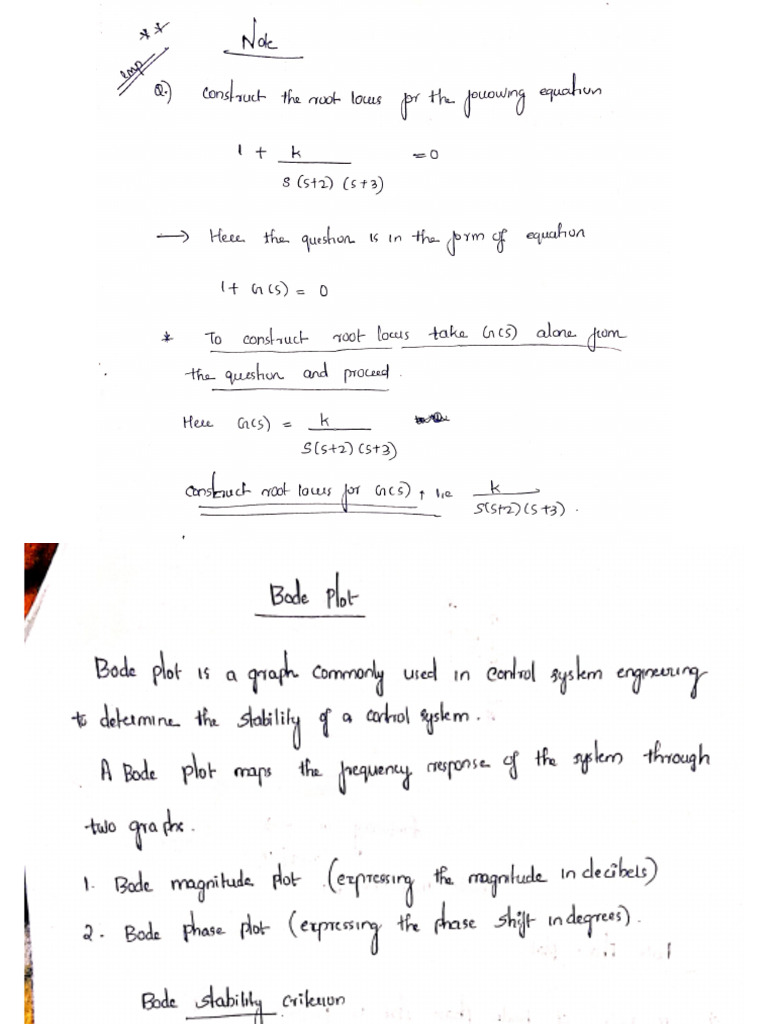 **
Note
Imp
Q.) construct the root locus for the following equation
1 + k / s(s+2) (s+3) = 0
→ Here the question is in the form of equation
1 + G(s) = 0
* To construct root locus take G(s) alone from
the question and proceed.
Here G(s) = k / s(s+2) (s+3)
construct root locus for G(s), i.e k / s(s+2) (s+3).
Bode plot
Bode plot is a graph commonly used in control system engineering
to determine the stability of a control system.
A Bode plot maps the frequency response of the system through
two graphs.
1. Bode magnitude plot (expressing the magnitude in decibels)
2. Bode phase plot (expressing the phase shift in degrees).
Bode stability criterion